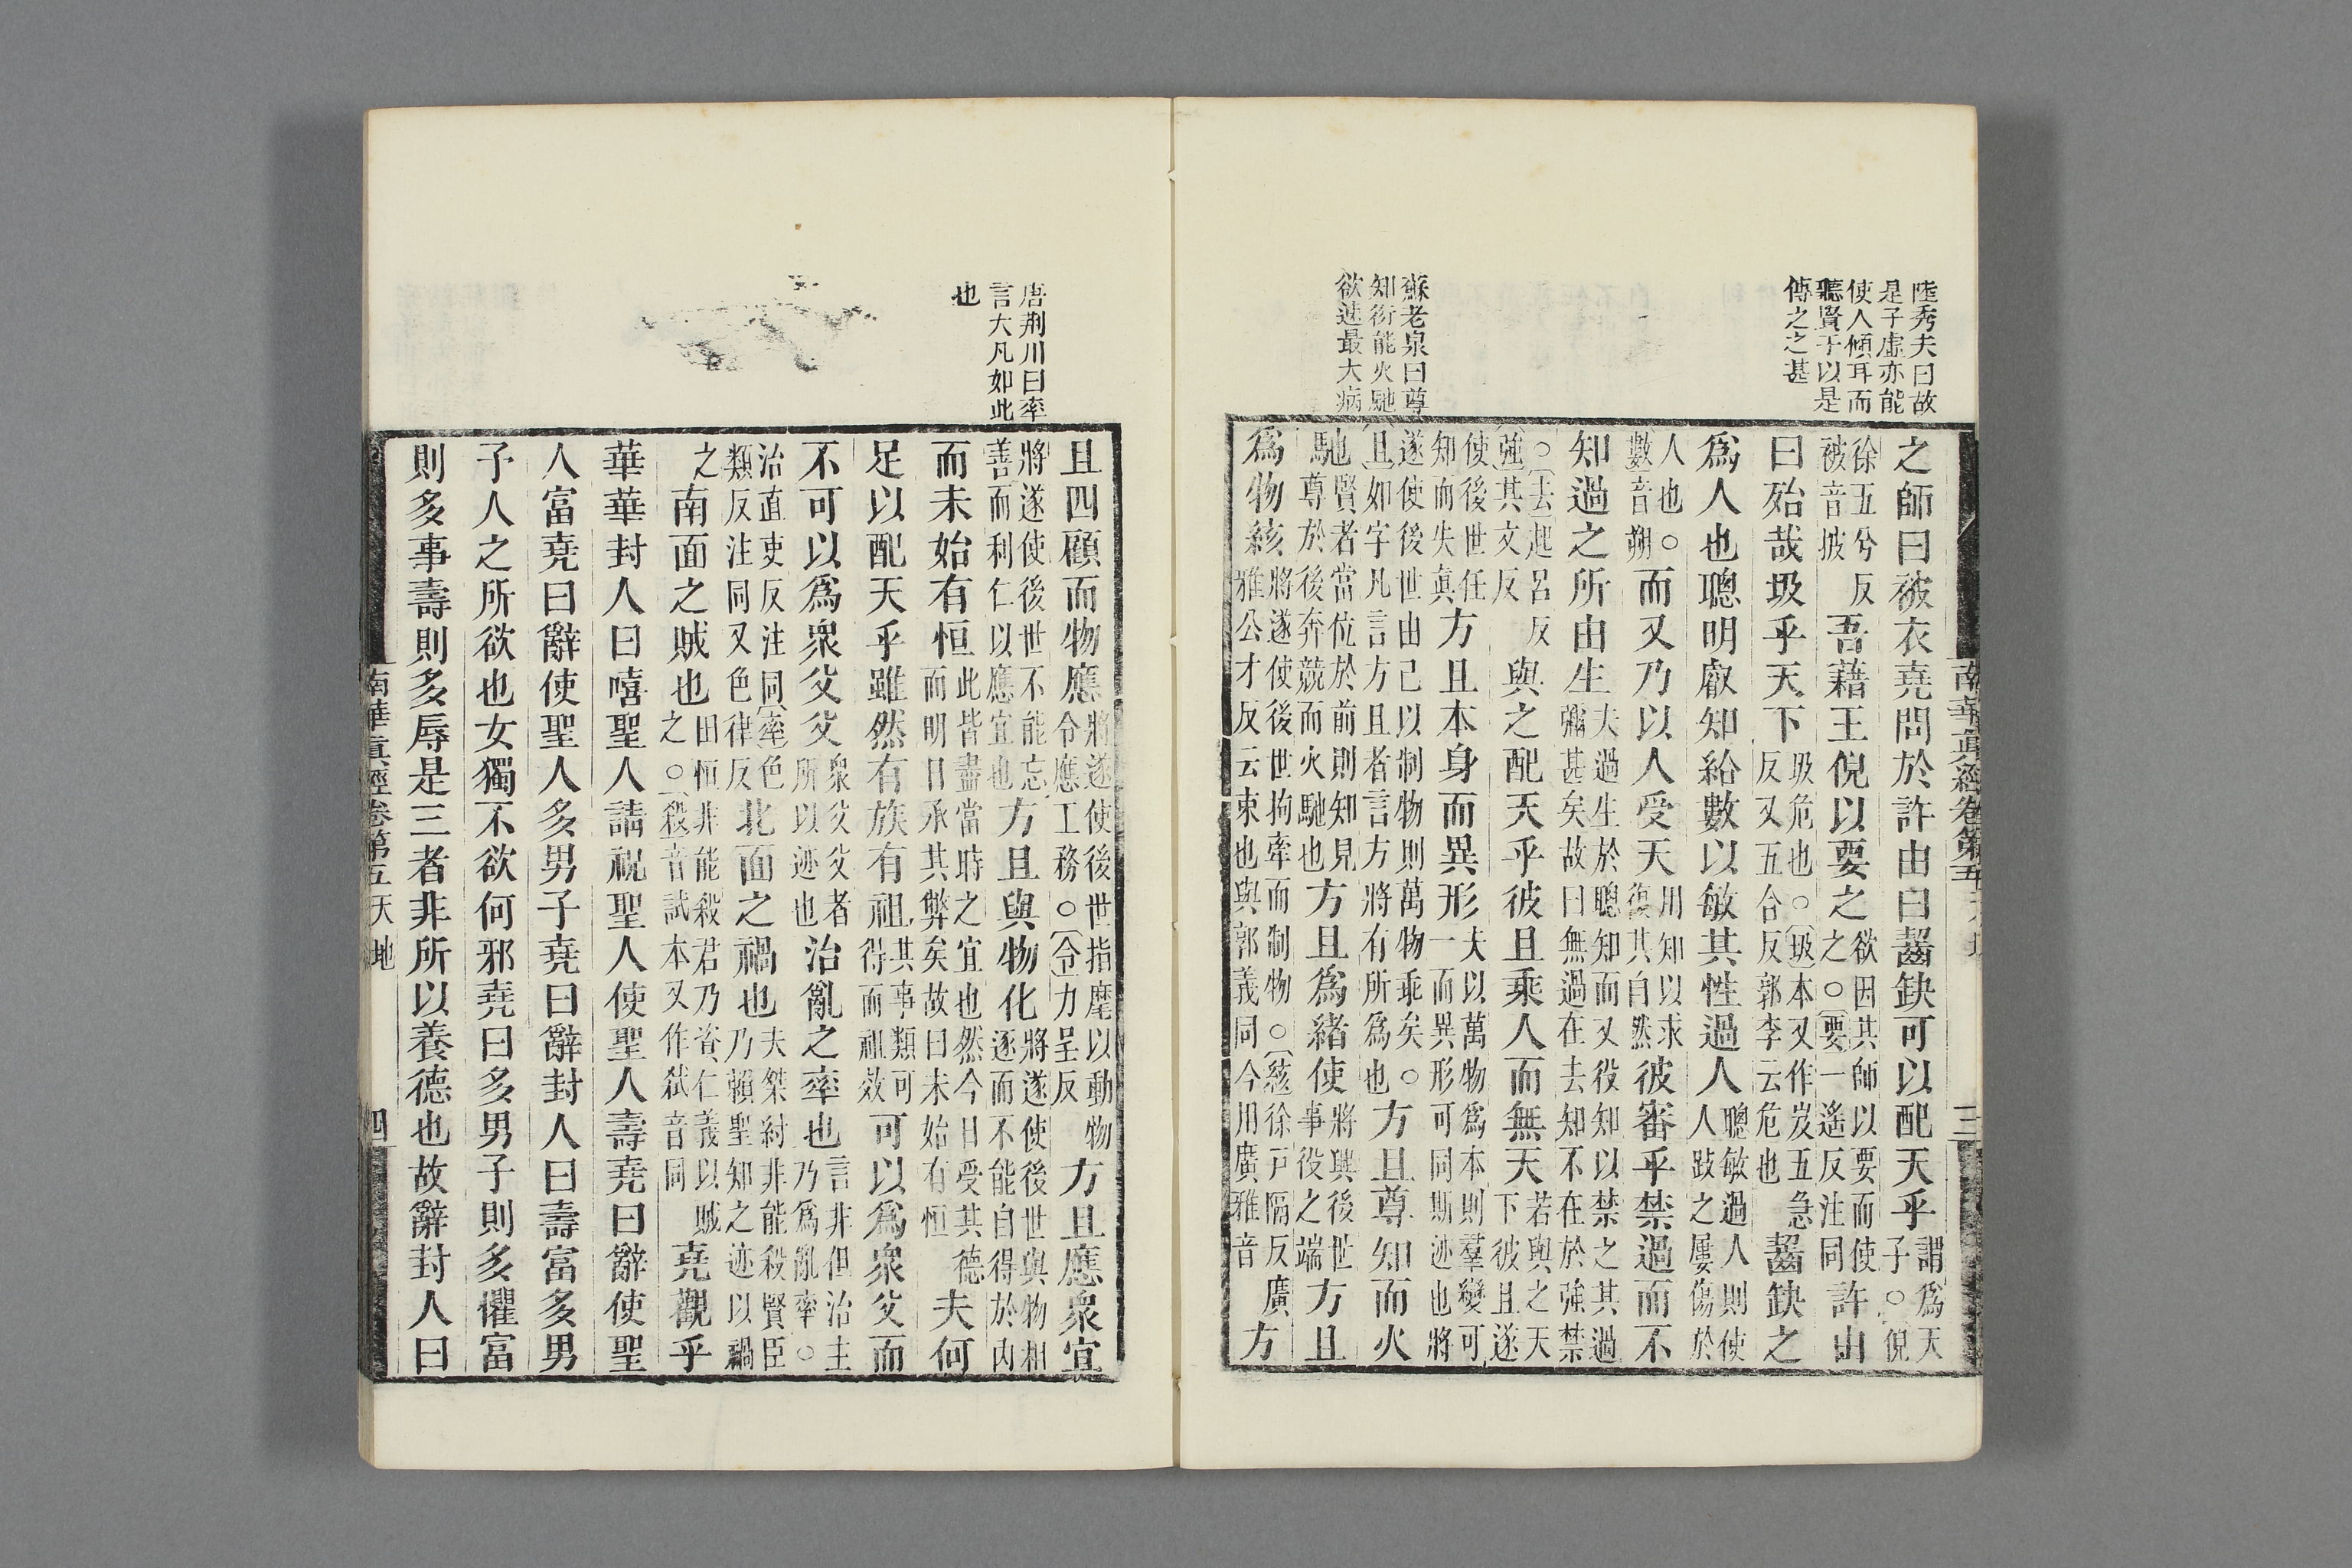 陸秀夫曰故
是子虛亦能
使人傾耳而
聽賢于以是
傳之之甚
蘇老泉曰尊
知衒能火馳
欲速最大病
南華真經卷第五
三
之師曰被衣堯問於許由曰齧缺可以配天乎謂爲天子○倪
徐五兮反被音披吾藉王倪以要之欲因其師以要而使之○要一遙反注同許由
曰殆哉圾乎天下圾危也○圾本又作岌五急反又五合反郭李云危也齧缺之
爲人也聰明叡知給數以敏其性過人聰敏過人則使人跂之屢傷於
人也○數音朔而又乃以人受天用知以求復其自然彼審乎禁過而不
知過之所由生夫過生於聰知而又役知以禁之其過彌甚矣故曰無過在去知不在於強禁
○去起呂反強其丈反與之配天乎彼且乘人而無天若與之天下彼且遂
使後世任知而失真方且本身而異形夫以萬物爲本則羣變可一而異形可同斯迹也將
遂使後世由己以制物則萬物乖矣○且如字凡言方且者言方將有所爲也方且尊知而火
馳賢者當位於前則知見尊於後奔競而火馳也方且爲緒使將興後世事役之端方且
爲物絯將遂使後世拘牽而制物○絯徐戸隔反廣雅公才反云束也與郭義同今用廣雅音方
唐荆川曰率
言大凡如此
也
且四顧而物應將遂使後世指麾以動物令應工務○令力呈反方且應衆宜
將遂使後世不能忘善而利仁以應宜也方且與物化將遂使後世與物相逐而不能自得於內
而未始有恒此皆盡當時之宜也然今日受其德而明日承其弊矣故曰未始有恒夫何
足以配天乎雖然有族有祖其事類可得而祖效可以爲衆父而
不可以爲衆父父衆父父者所以迹也治亂之率也言非但治主乃爲亂率○
治直吏反注同率色類反注同又色律反北面之禍也夫桀紂非能殺賢臣乃賴聖知之迹以禍
之南面之賊也田恒非能殺君乃資仁義以賊之○殺音試本又作弒音同堯觀乎
華華封人曰嘻聖人請祝聖人使聖人壽堯曰辭使聖
人富堯曰辭使聖人多男子堯曰辭封人曰壽富多男
子人之所欲也女獨不欲何邪堯曰多男子則多懼富
則多事壽則多辱是三者非所以養德也故辭封人曰
南華真經卷第五天地
四